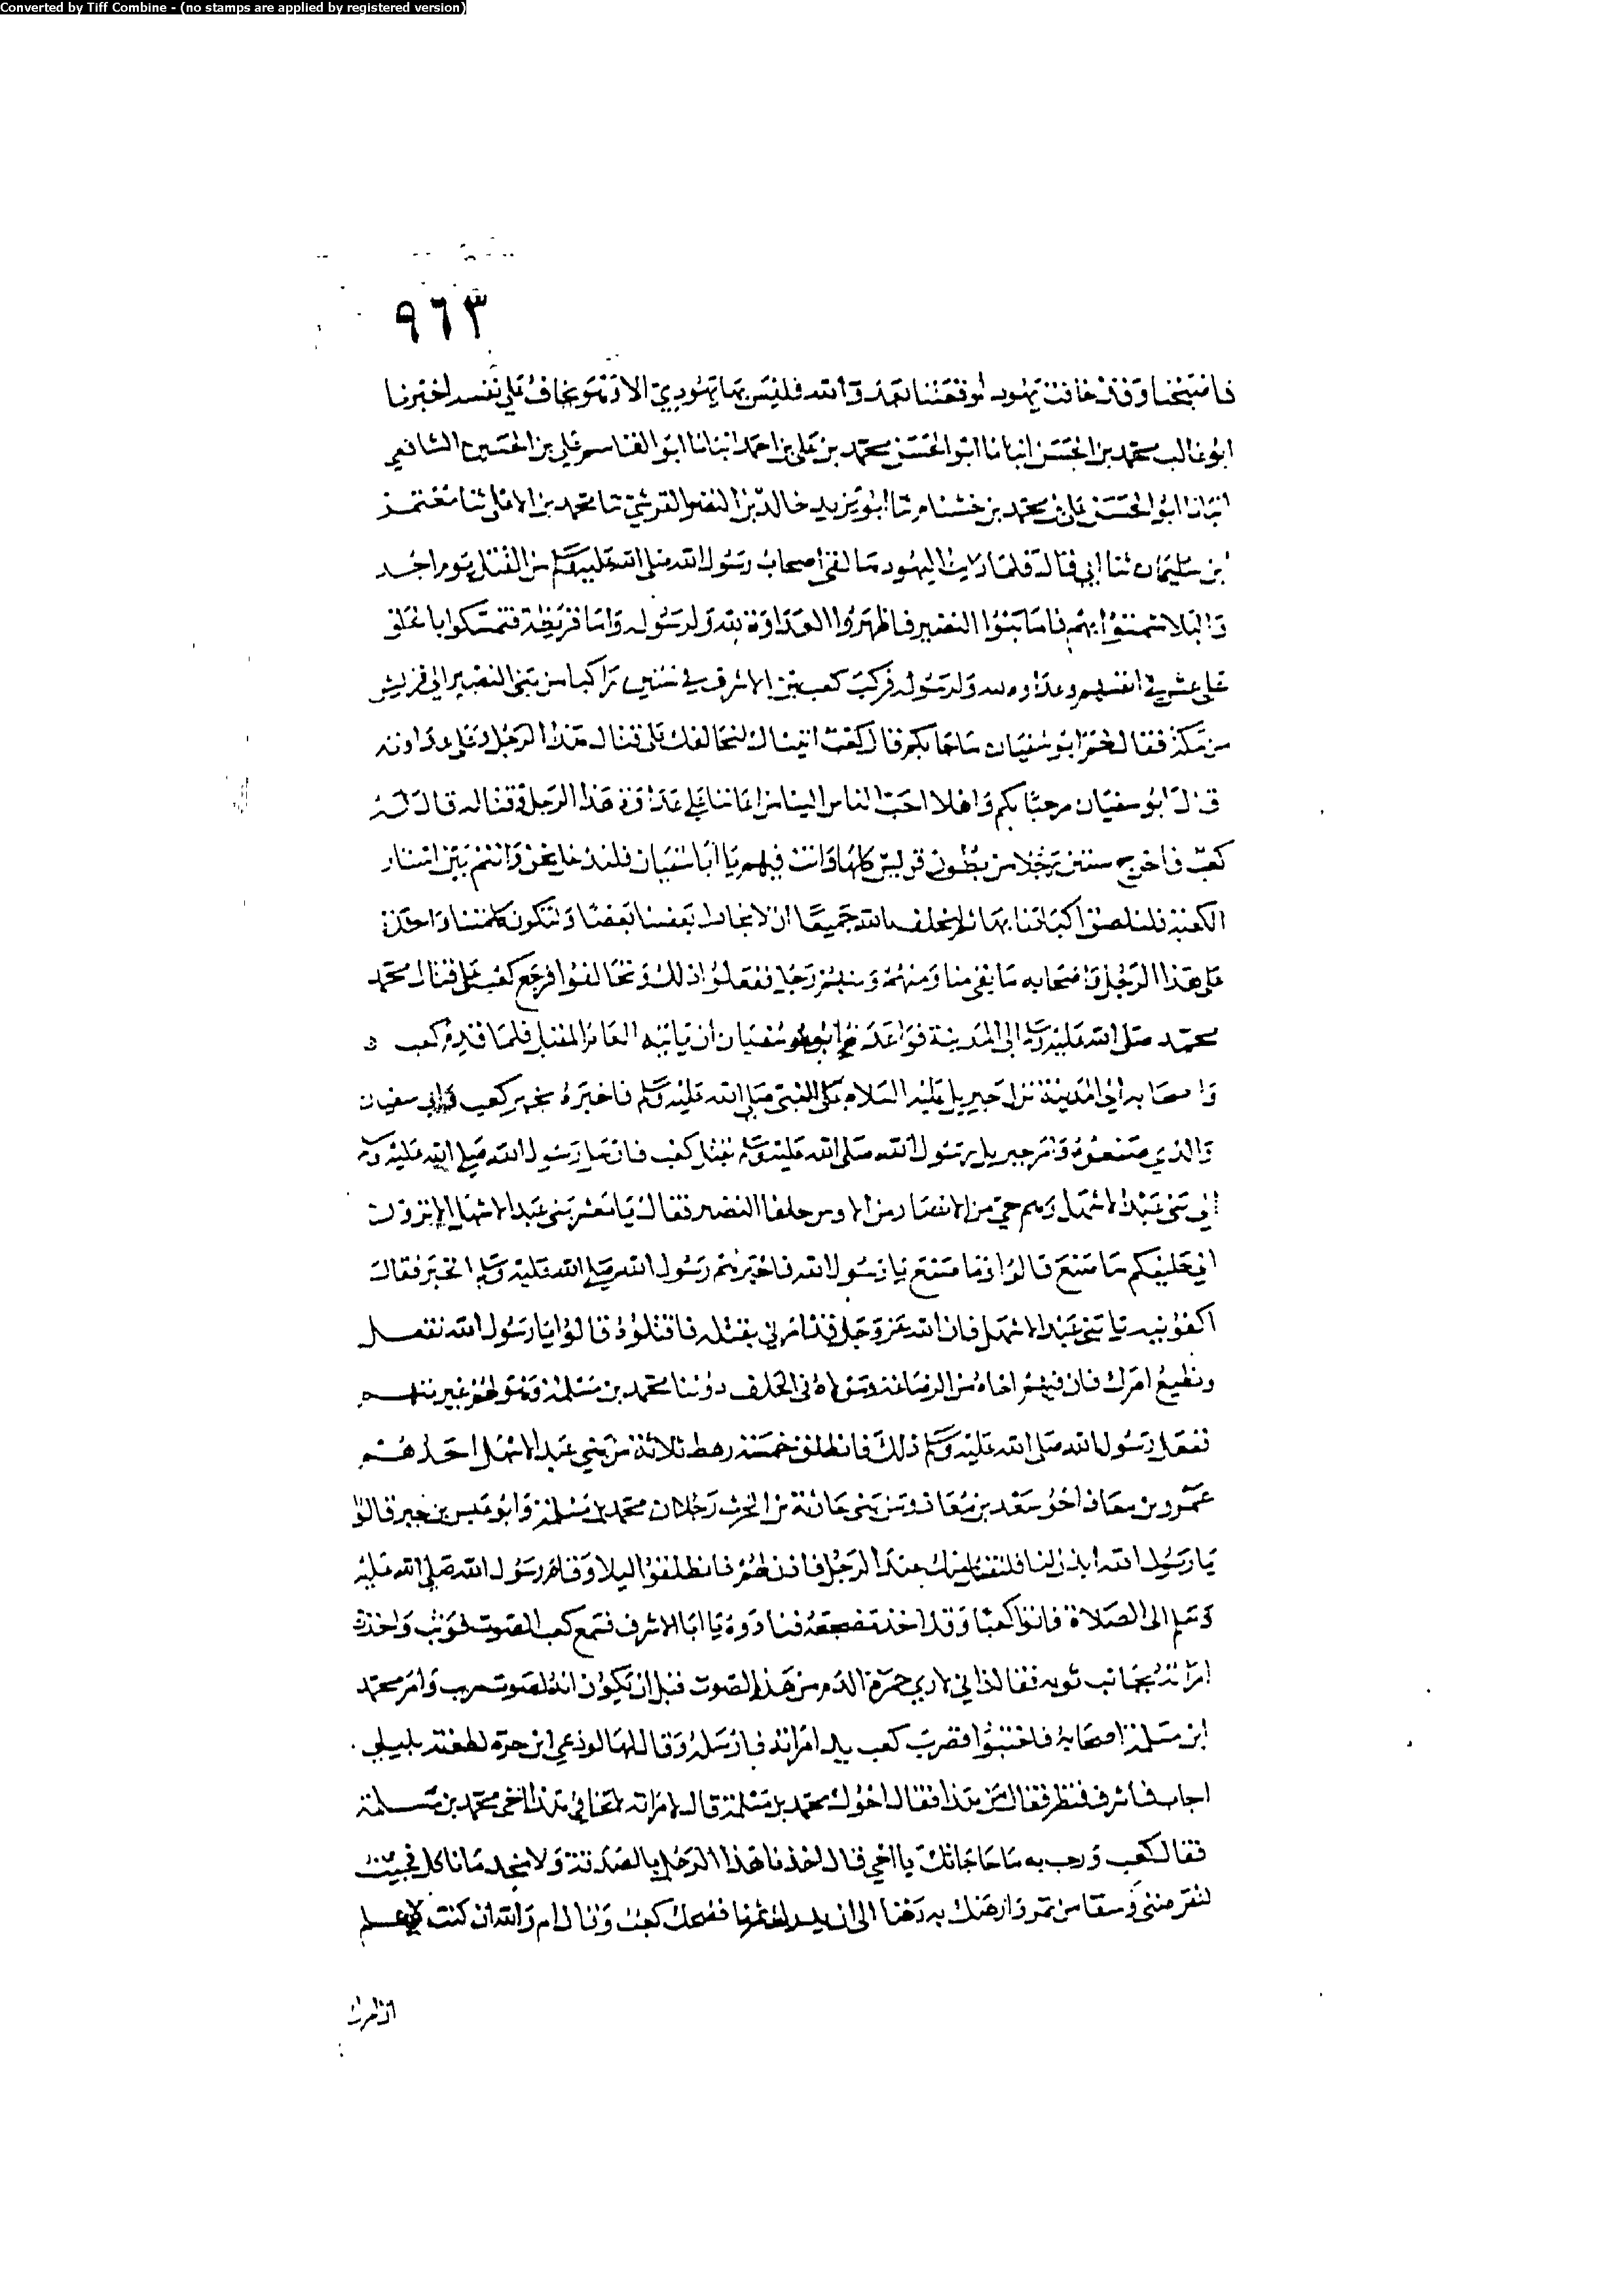 Converted by Tiff Combine - (no stamps are applied by registered version)
٩٦٣
فاصبحنا وقد خافت يهود لوقعتنا بعدو الله فليس بها يهودي الا وهو يخاف على نفسه اخبرنا
ابو غالب محمد بن الحسن انبانا ابو الحسن محمد بن علي بن احمد انبانا ابو القاسم علي بن الحسين الشافعي
انبانا ابو الحسن علي بن محمد بن خشنام ثنا ابو يزيد خالد بن النضر القرشي ثنا محمد بن الاعلى ثنا معتمر
بن سليمان ثنا ابي قال فلما رات اليهود ما لقي اصحاب رسول الله صلى الله عليه وسلم من القتل يوم احد
والبلا شمتوا بهم فاما بنوا النضير فاظهروا العداوة لله ولرسوله واما قريظة فتمسكوا بالحلف
على غش في انفسهم وعداوة لله ولرسوله فركب كعب بن الاشرف في ستين راكبا من بني النضير الى قريش
من مكة فقال لهم ابو سفيان ما جا بكم قال كعب اتيناك لنحالفك على قتال هذا الرجل وعلى عداوته
قال ابو سفيان مرحبا بكم واهلا احب الناس الينا من اعاننا على عداوة هذا الرجل وقتاله قال له
كعب فاخرج ستين رجلا من بطون قريش كلها وانت فيهم يا ابا سفيان فلندخل نحن وانتم بين استار
الكعبة فلنلصق اكبادنا بها ثم لنحلف بالله جميعا ان لا يخذل بعضنا بعضا ولتكون كلمتنا واحدة
على هذا الرجل واصحابه ما بقي منا ومنهم رجل ففعلوا ذلك وتحالفوا فرجع كعب على قتال محمد
محمد صلى الله عليه وسلم الى المدينة فواعدهم ابو سفيان ان ياتيه العام المقبل فلما قدم كعب
واصحابه الى المدينة نزل جبريل عليه السلام على النبي صلى الله عليه وسلم فاخبره بخبر كعب وابي سفيان
والذي صنعوه وامر جبريل رسول الله صلى الله عليه وسلم بقتل كعب فارسل رسول الله صلى الله عليه وسلم
الى بني عبد الاشهل وهم حي من الانصار من الاوس حلفا النضير فقال يا معشر بني عبد الاشهل الا ترون
الى حليفكم ما صنع قالوا وما صنع يا رسول الله فاخبرهم رسول الله صلى الله عليه وسلم الخبر فقال
اكفونيه يا بني عبد الاشهل فان الله عز وجل قد امرني بقتله فاقتلوه قالوا يا رسول الله نفعل
ونطيع امرك فان فيهم اخاه من الرضاعة ومولاه في الحلف دوننا محمد بن مسلمة وهو لهم غير متهم
ففعل رسول الله صلى الله عليه وسلم ذلك فانطلق خمسة رهط ثلاثة من بني عبد الاشهل احدهم
عمرو بن معاذ اخو سعد بن معاذ ومن بني حارثة بن الحرث رجلان محمد بن مسلمة وابو عبس بن جبر قالوا
يا رسول الله ايذن لنا فلنقتل هذا الرجل فاذن لهم فانطلقوا ليلا وقام رسول الله صلى الله عليه
وسلم الى الصلاة فاتوا كعبا وقد اخذ مضجعه فنادوه يا ابا الاشرف فسمع كعب الصوت فوثب واخذت
امراته بجانب ثوبه فقالت اني لارى حمرة الدم من هذا الصوت قبل ان يكون انه لصوت مريب وامر محمد
ابن مسلمة اصحابه فاختبئوا فضرب كعب يد امراته فارسلته وقال لها لو دعي ابن حرة لطعنة بليل
اجاب فاشرف فنظر فقال من هذا فقال اخوك محمد بن مسلمة قال لامراته لا تخافي هذا اخي محمد بن مسلمة
فقال كعب ورحب به ما حاجاتك يا اخي قال اخذنا هذا الرجل بالصدقة ولا نجد ما ناكل فجيت
لتقرضني وسقا من تمر وارهنك به رهنا الى ان يدرك ثمرنا فضحك كعب وقال ام والله ان كنت لاعلم
ان امرك